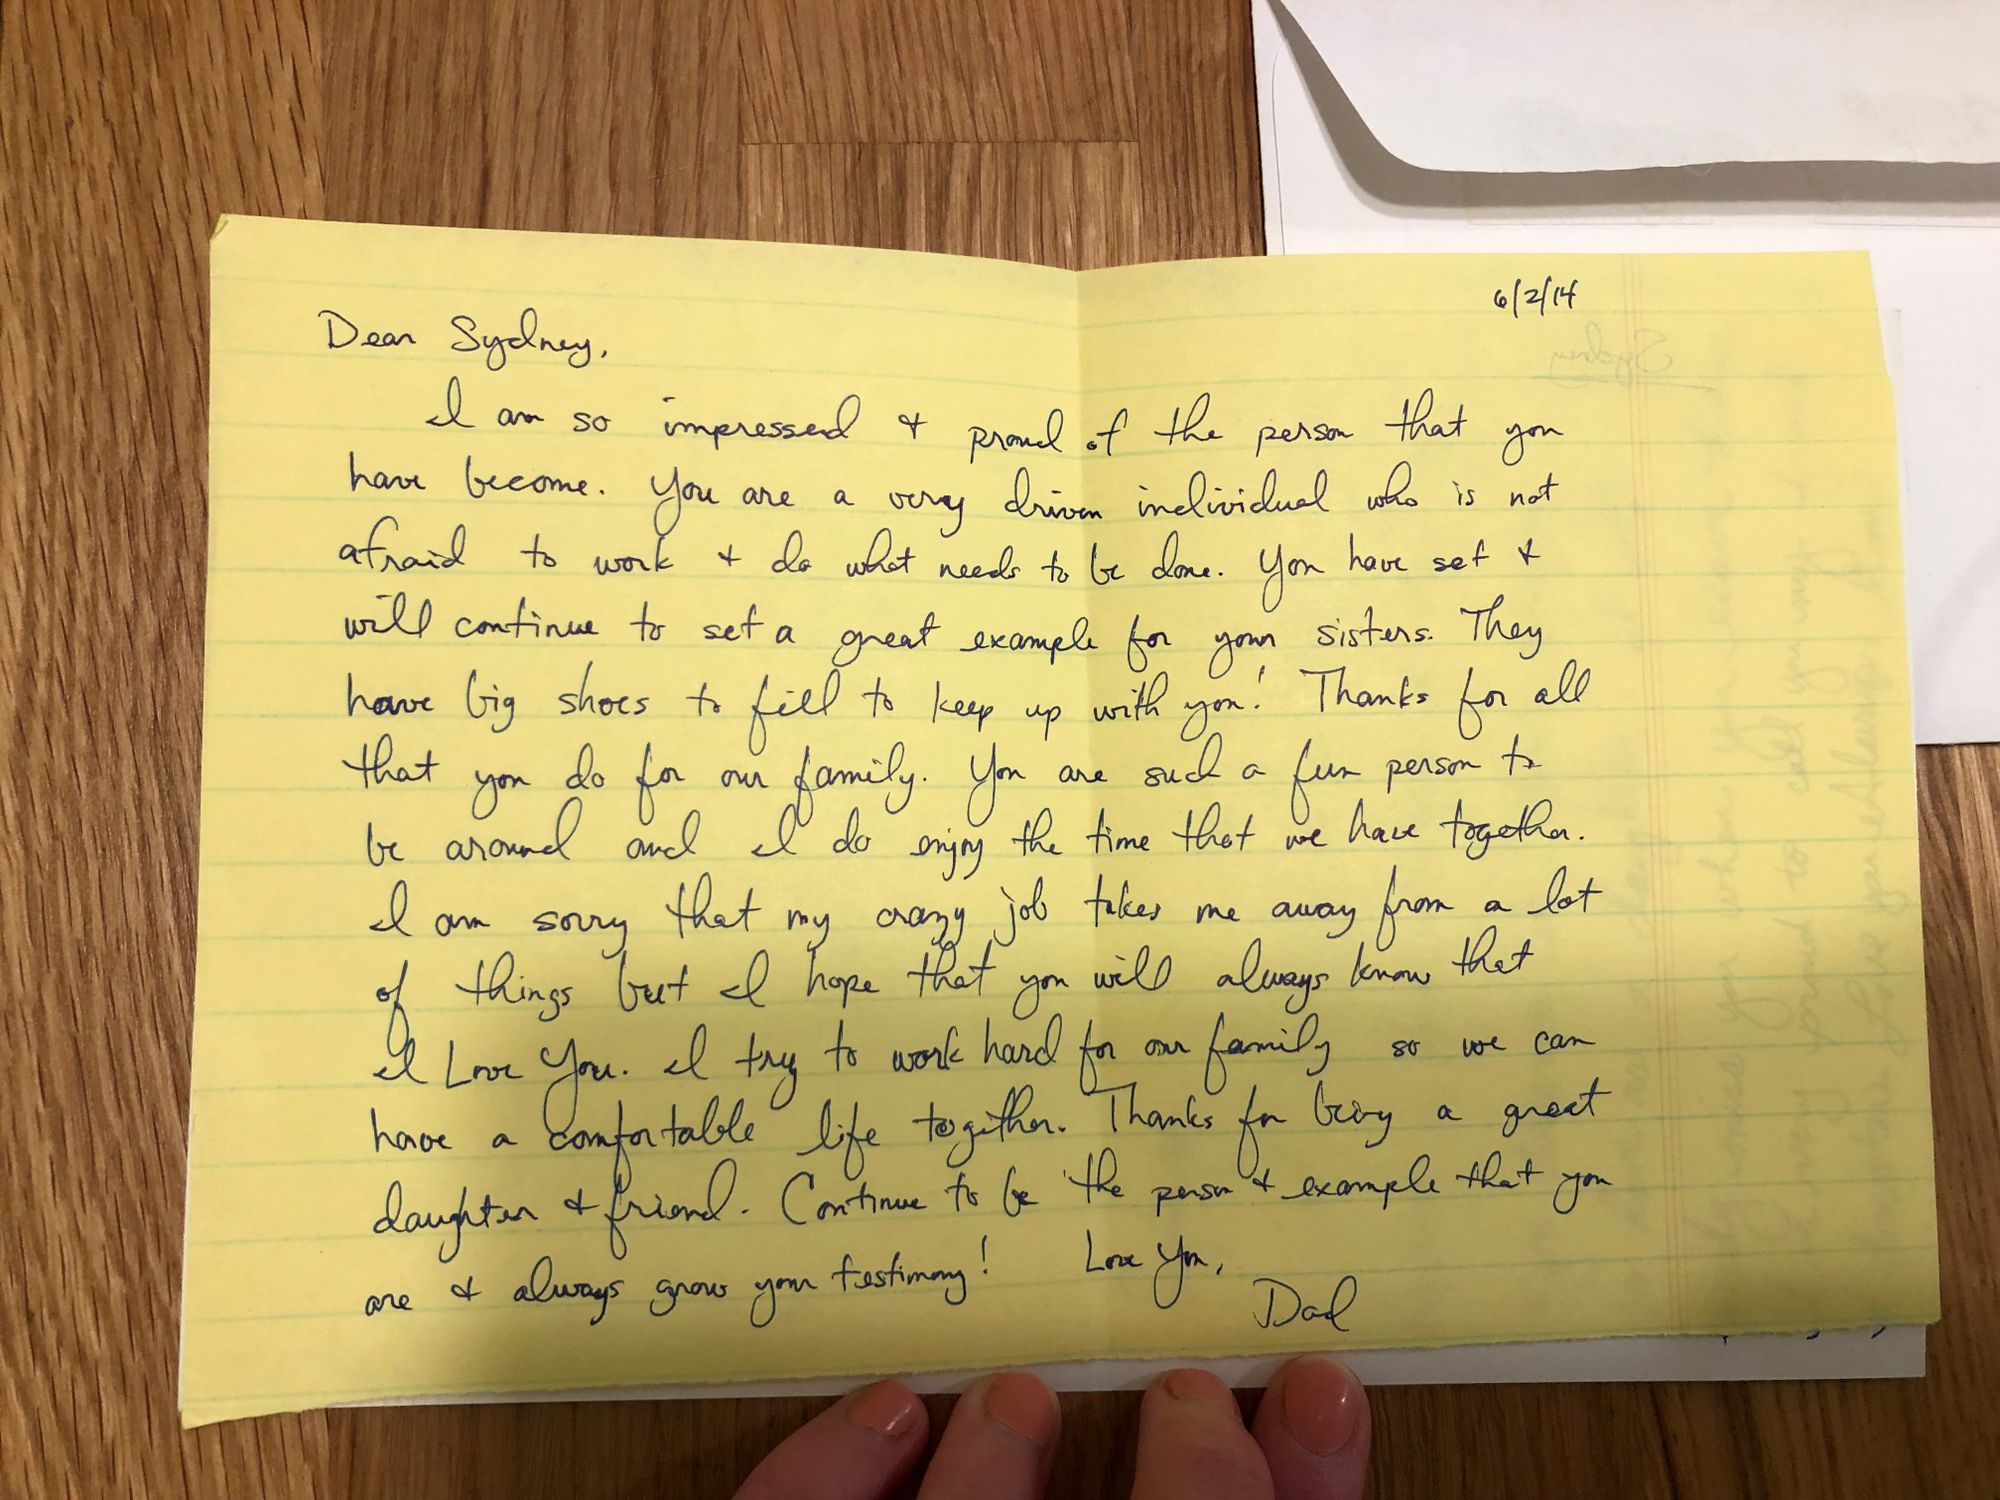 6/2/14
Dear Sydney,
I am so impressed & proud of the person that you
have become. You are a very driven individual who is not
afraid to work & do what needs to be done. You have set &
will continue to set a great example for your sisters. They
have big shoes to fill to keep up with you! Thanks for all
that you do for our family. You are such a fun person to
be around and I do enjoy the time that we have together.
I am sorry that my crazy job takes me away from a lot
of things but I hope that you will always know that
I Love You. I try to work hard for our family so we can
have a comfortable life together. Thanks for being a great
daughter & friend. Continue to be the person & example that you
are & always grow your testimony! Love You,
Dad
Sydney